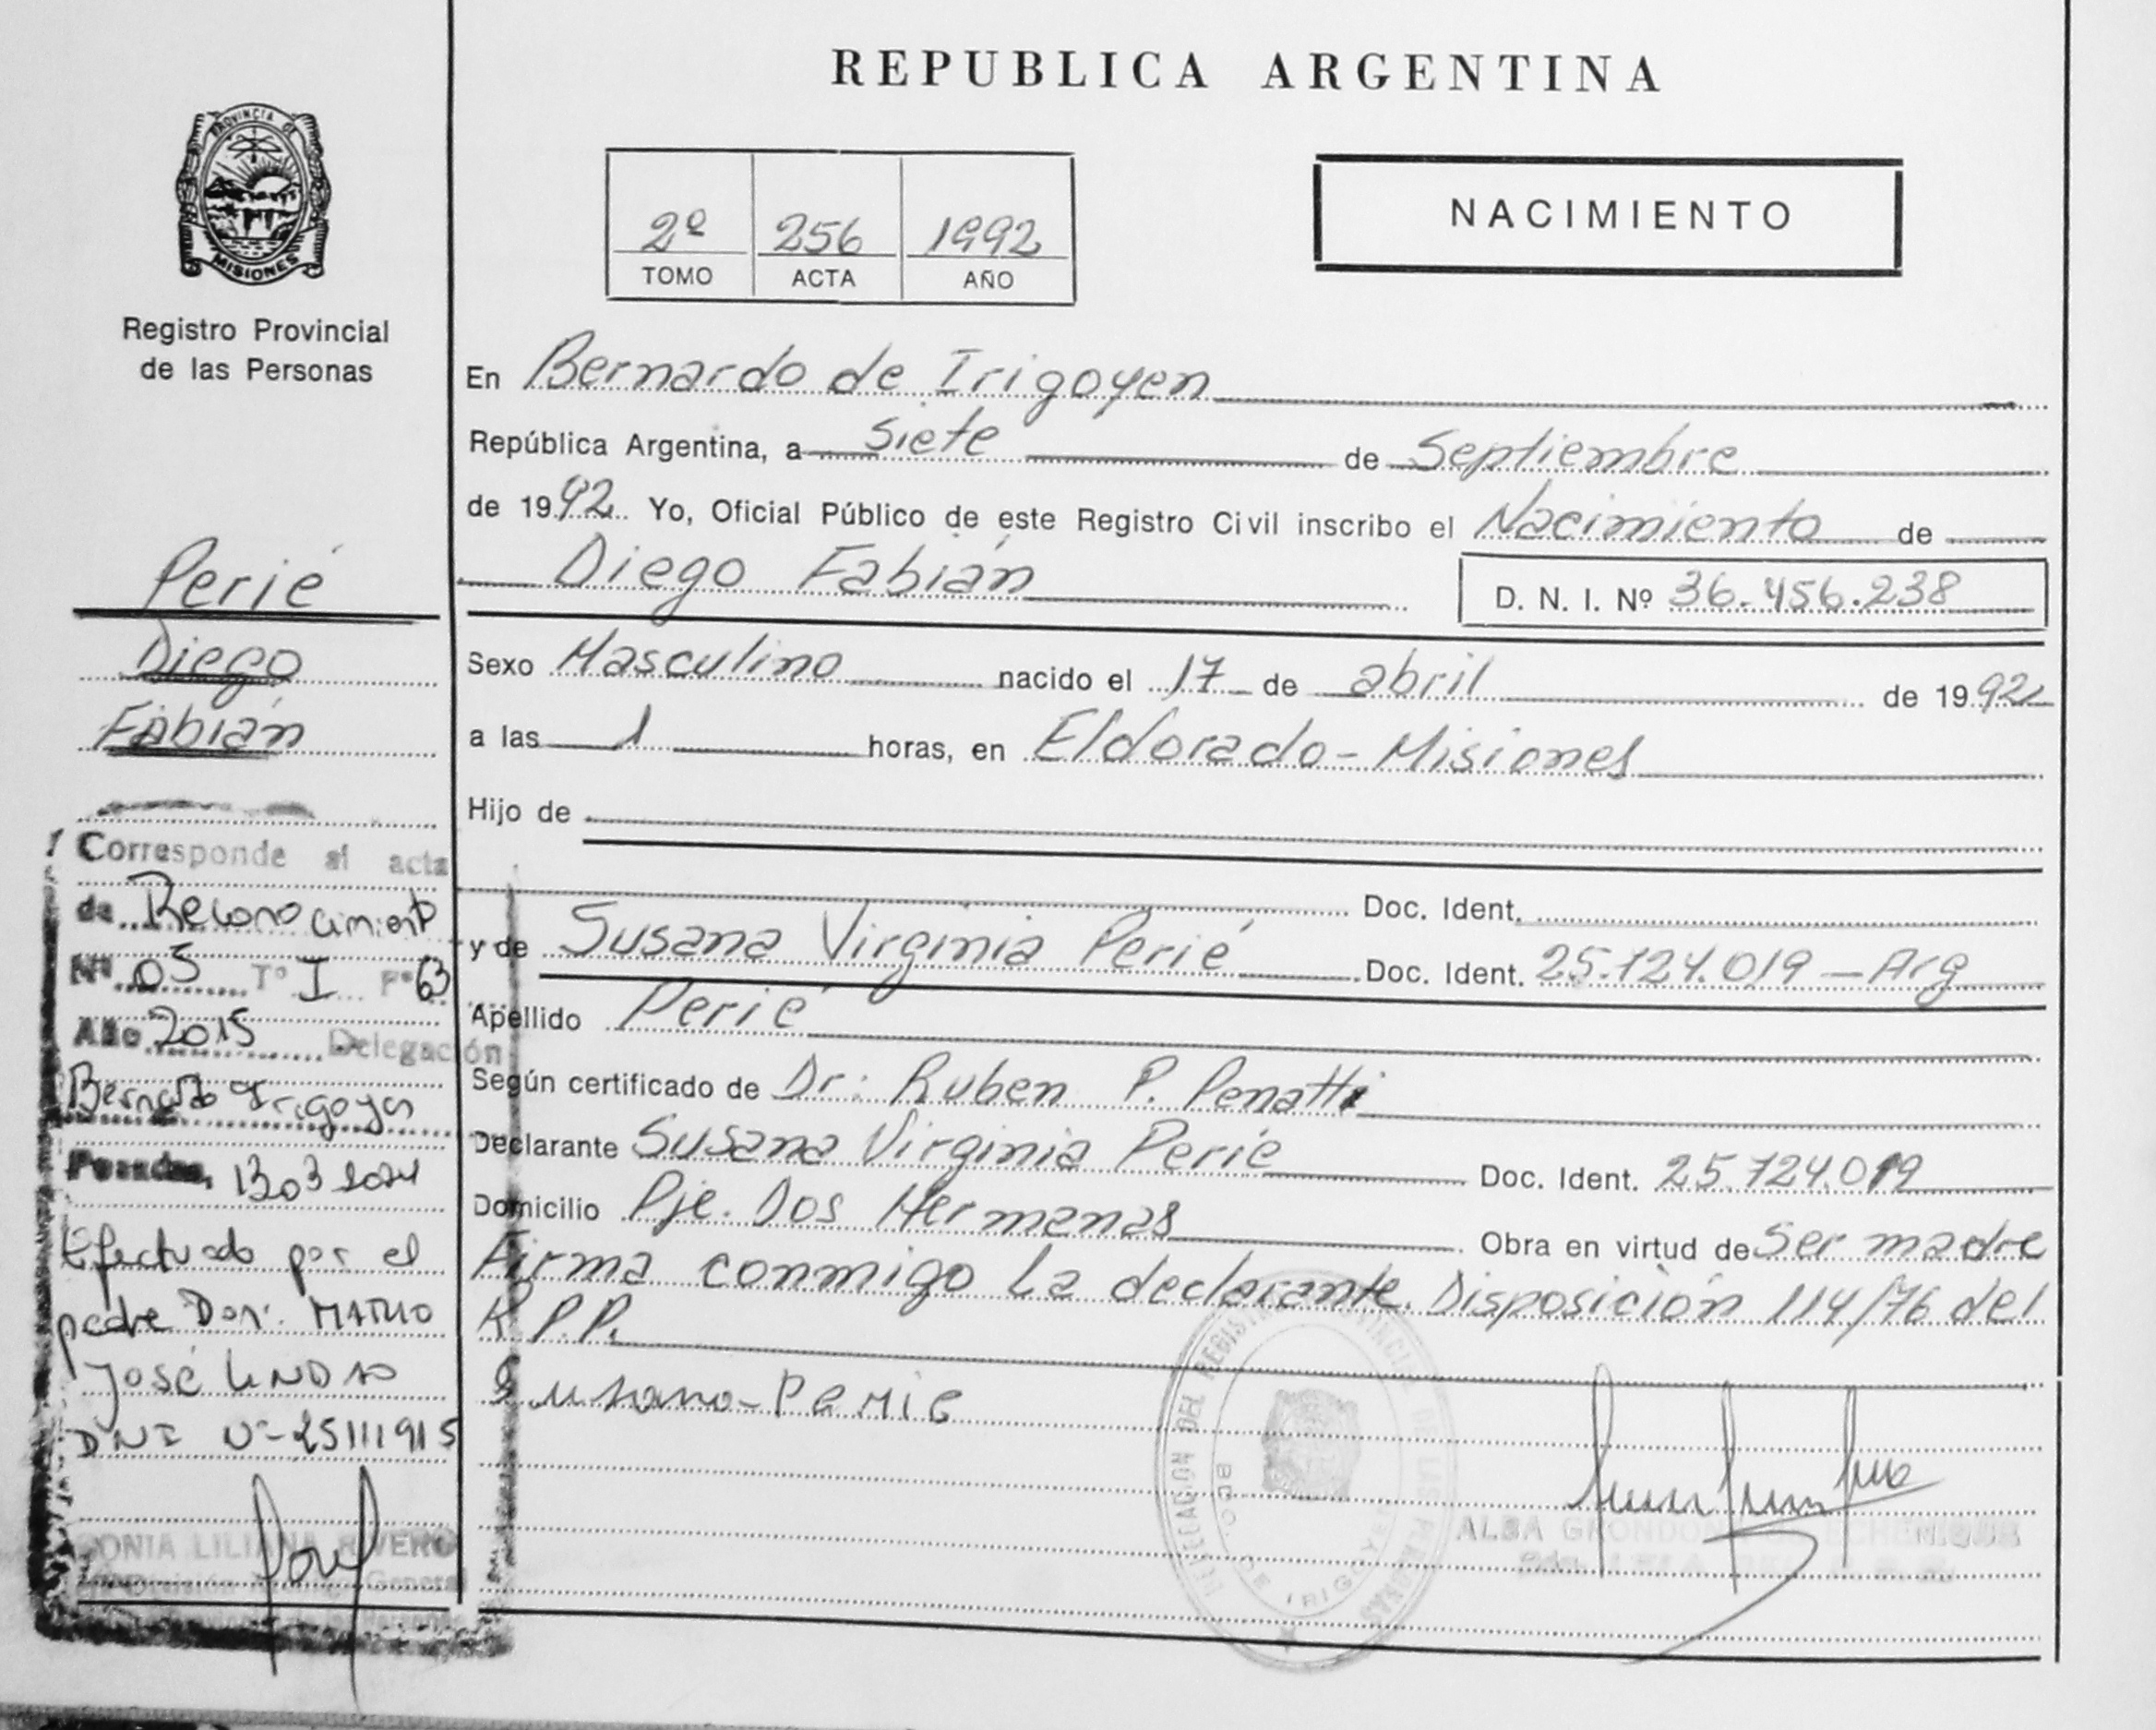 REPUBLICA ARGENTINA
PROVINCIA DE
MISIONES
Registro Provincial
de las Personas
2º 256 1992
TOMO ACTA AÑO
NACIMIENTO
En Bernardo de Irigoyen
República Argentina, a Siete de Septiembre
de 1992 Yo, Oficial Público de este Registro Civil inscribo el Nacimiento de
Diego Fabián D. N. I. Nº 36.456.238
Sexo Masculino nacido el 17 de abril de 1992
a las 1 horas, en Eldorado - Misiones
Hijo de
Doc. Ident.
y de Susana Virginia Perié Doc. Ident. 25.724.019 - Arg
Apellido Perié
Según certificado de Dr: Ruben P. Penatti
Declarante Susana Virginia Perié Doc. Ident. 25.724.019
Domicilio Pje. Dos Hermanas Obra en virtud de Ser madre
Firma conmigo la declarante. Disposición 114/76 del
R.P.P.
Susana - Perie
Perié
Diego
Fabián
Corresponde al acta
de Reconocimiento
Nº 05 Tº I Fº 63
Año 2015 Delegación
Bernardo Irigoyen
Posadas,
Efectuado por el
padre Don:
José
DNI Nº 25111915
SONIA LILIANA RIVERO
General
DELEGACION DEL REGISTRO PROVINCIAL DE LAS PERSONAS
BDO. DE IRIGOYEN
ALBA